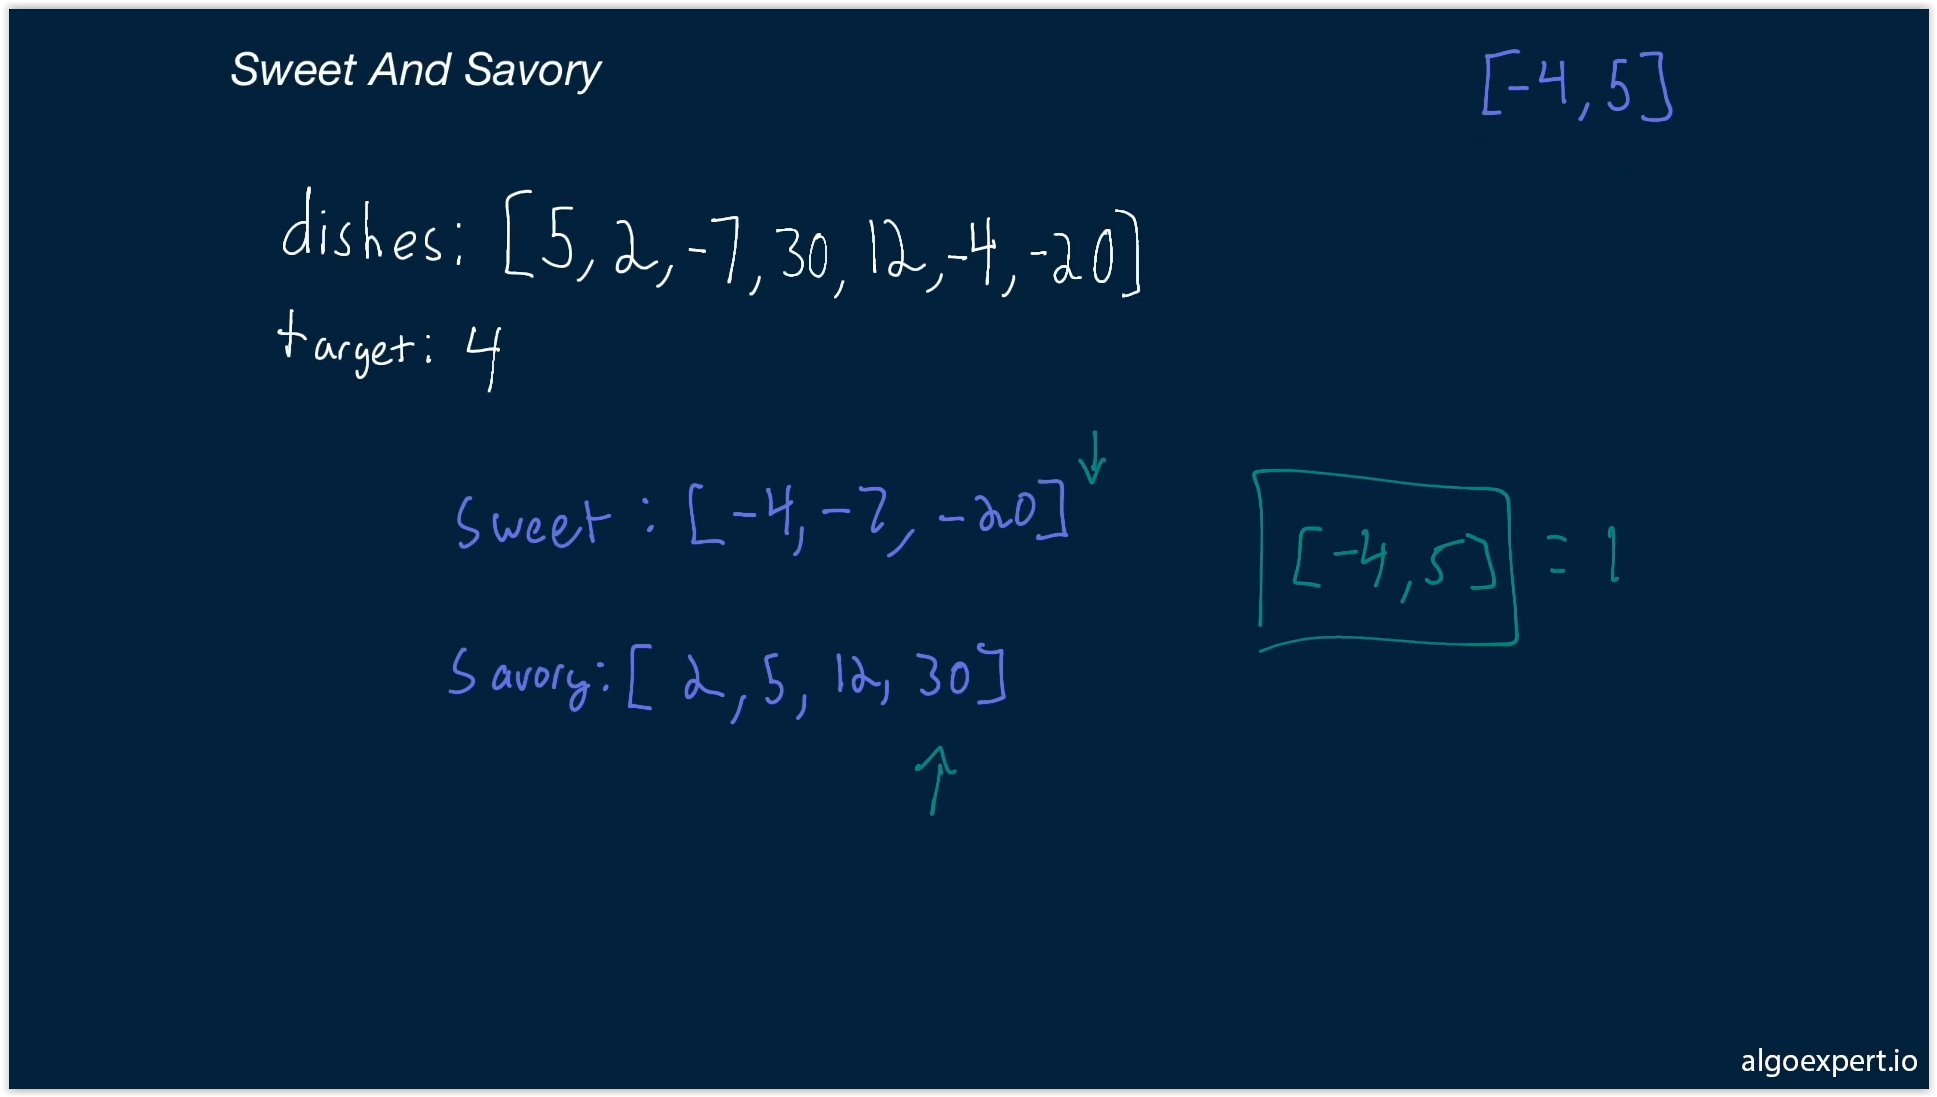 Sweet And Savory
[-4, 5]
dishes: [5, 2, -7, 30, 12, -4, -20]
target: 4
sweet: [-4, -7, -20]
[-4, 5] = 1
savory: [2, 5, 12, 30]
algoexpert.io